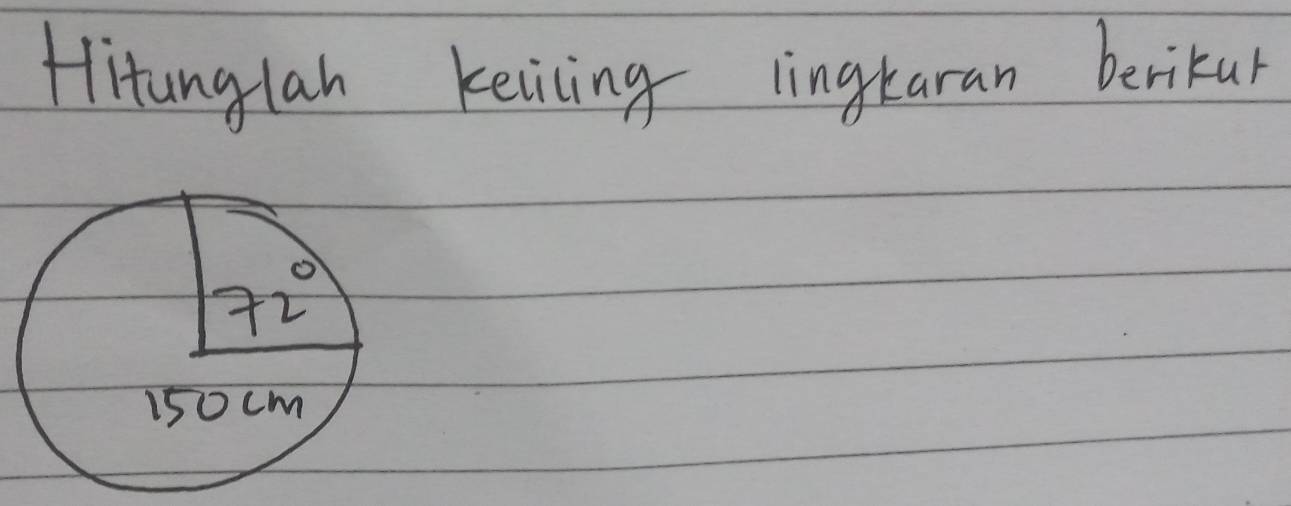 Hitunglah keliling lingkaran berikut
72°
150 cm